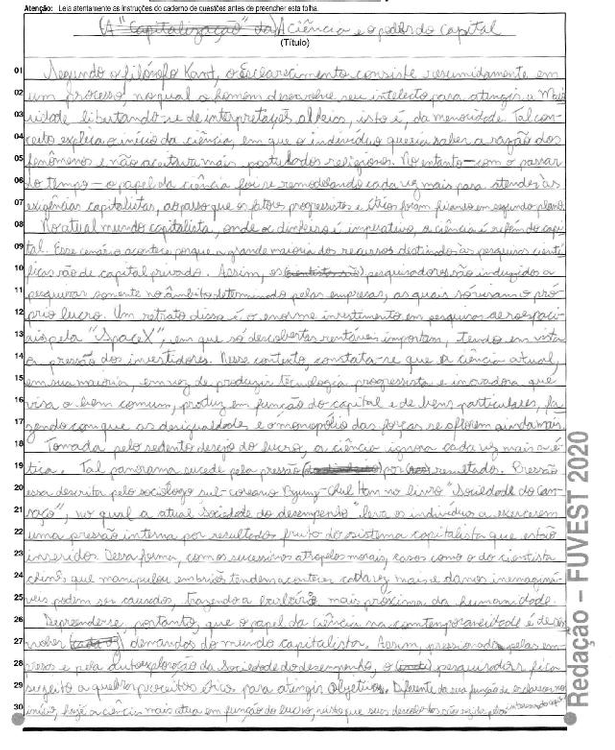 Atenção: Leia atentamente as instruções do caderno de questões antes de preencher esta folha.
(A "Capitalização" da) A ciência e o poder do capital
(Título)
01 Segundo o filósofo Kant, o Esclarecimento consiste resumidamente em
02 um processo, no qual o homem desenvolve seu intelecto para atingir a Maio
03 ridade libertando-se de interpretações alheias, isto é, da menoridade. Tal con-
04 ceito explica o início da ciência, em que o indivíduo queria saber a razão dos
05 fenômenos e não aceitava mais postulados religiosos. No entanto – com o passar
06 do tempo – o papel da ciência foi se remodelando cada vez mais para atender às
07 exigências capitalistas, ao passo que os fatores progressistas e éticos foram ficando em segundo plano.
08 No atual mundo capitalista, onde o dinheiro é imperativo, a ciência é refém do capi
09 tal. Esse cenário acontece porque a grande maioria dos recursos destinados às pesquisas cientí-
10 ficas são de capital privado. Assim, os pesquisadores são induzidos a
11 pesquisar somente no âmbito determinado pelas empresas, as quais só visam o pró-
12 prio lucro. Um retrato disso é o enorme investimento em pesquisas aeroespaci-
13 ais pela "SpaceX", em que só descobertas rentáveis importam, tendo em vista
14 a pressão dos investidores. Nesse contexto, constata-se que a ciência atual,
15 em sua maioria, em vez de produzir tecnologia progressista e inovadora, que
16 visa o bem comum, produz em função do capital e de bens particulares, fa
17 zendo com que as desigualdades e o monopólio das forças se aflorem ainda mais.
18 Tomada pelo sedento desejo do lucro, a ciência ignora cada vez mais a é
19 tica. Tal panorama sucede pela pressão por resultados. Pressão
20 essa descrita pelo sociólogo sul-coreano Byung-Chul Han no livro "Sociedade do Can-
21 saço", no qual a atual Sociedade do desempenho leva os indivíduos a exercerem
22 uma pressão interna por resultados fruto do sistema capitalista que estão
23 inseridos. Dessa forma, com os sucessivos atropelos morais, casos como o do cientista
24 chinês, que manipulou embriões tendem a acontecer cada vez mais e danos inimaginá-
25 veis podem ser causados, trazendo a barbárie mais próxima da humanidade.
26 Depreende-se, portanto, que o papel da ciência na contemporaneidade é
27 demandas do mundo capitalista. Assim, pressionado pelas em
28 presas e pela autoexploração da Sociedade do desempenho, o pesquisador fica
29 sujeito a quebrar preceitos éticos para atingir objetivos. Diferente da sua função de esclarecer no
30 início, hoje a ciência mais atua em função do lucro, visto que suas descobertas são regidas pelo
Redação – FUVEST 2020